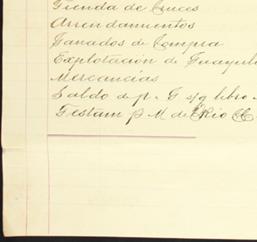 Tienda de Cruces
Arrendamientos
Ganados de Compra
Explotacion de Guayule
Mercancias
Saldo de p. G s/g libro
Testam p M. del Rio